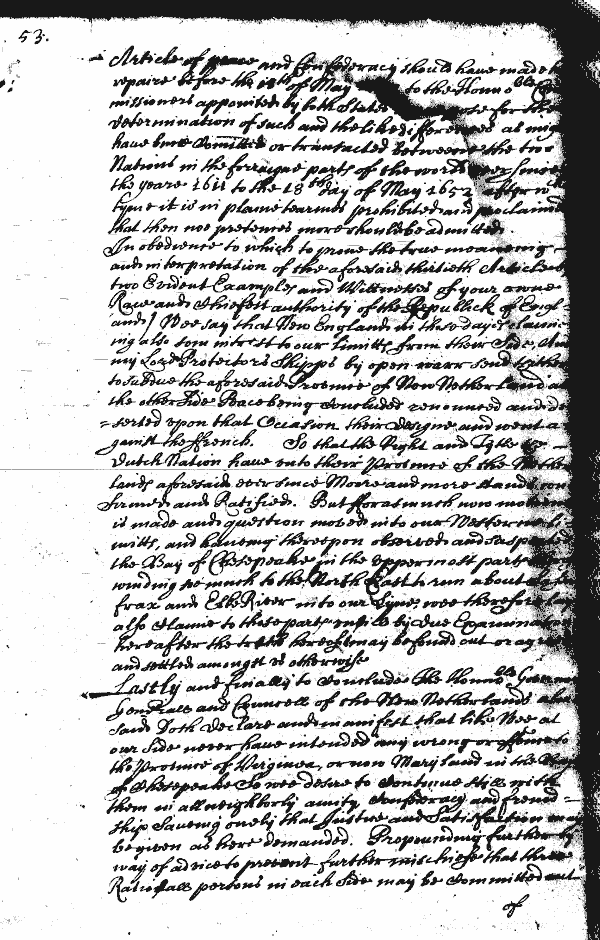 53.
Article of peace and Confederacy should have made
repaire before the 18th of May to the Honno ble
missioners appointed by both States for the
determination of such and the like differences as
have bene Committed or transacted betweene the two
Nations in the forraigne parts of the world ever since
the yeare 1611 to the 18th day of May 1652 after wch
tyme it is in plaine tearmes prohibited and proclaim
that then noe pretences more should be admitted.
In obedience to which to prove the true meaneing
and interpretation of the aforesaid thirtieth Article
two Evident Examples and Wittnesses of your owne
Race and Chiefest authority of the Republick of Engl-
and) Wee say that New England in those dayes claime
ing also som intrest to our limitts from their Side, And
my Lord Protectors Shipps by open warr send
to subdue the aforesaid Province of New Netherland at
the other Side Peace being Concluded renounced and de
=serted upon that Occasion their designe and went a
gainst the ffrench. So that the Right and Tytle
Dutch Nation have unto their Province of the Nether
lands aforesaid ever since Moore and more stands con
firmed and Ratified. But fforasmuch now
is made and question moved into our Westerne li-
mitts, and haveing thereupon observed and suspected
the Bay of Chesepeake in the uppermost part
winding so much to the North East to run about
frax and Elke River into our Lyne, wee therefore
also Claime to those parts until by due Examination
hereafter the truth hereof may be found out or
and settled amongst us otherwise
Lastly and finally to Conclude The Honno ble Governor
Generall and Councell of the New Netherlands
said Doth declare and manifest that like Wee at
our side never have intended any wrong or offence to
the Province of Virginea, or now Maryland in the Bay
of Chesepeake So wee desire to Continue Still with
them in all neighborly amity Confederacy and freind=
ship Saveing onely that Justice and Satisfaction may
be given as here demanded. Propounding further by
way of advice to prevent further mischiefe that three
Rationall persons in each Side may be Committed out
of